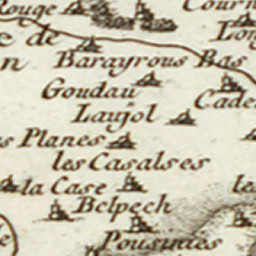 Rouge
Courn
Lon
e de
n
Barayrous Bas
Goudau
Cade
Laujol
s Planes
les Casalses
la Case
le
Belpech
Pousiniés